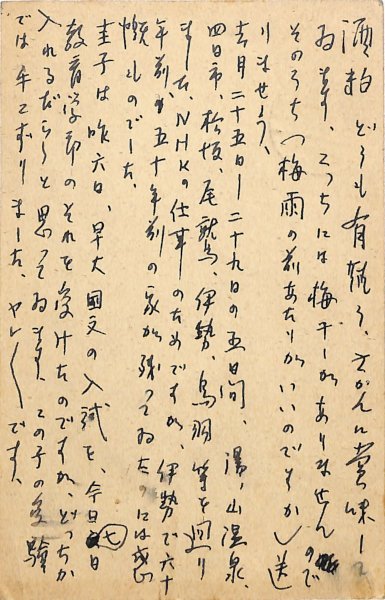 酒粕どうも有難う、さかんに賞味して
ゐます、こっちには梅干がありませんので
そのうち(梅雨の前あたりがいいのですが)送
りませう、
去月二十五日―二十九日の五日間、湯ノ山温泉、
四日市、松坂、尾鷲、伊勢、鳥羽等を廻り
ました、NHKの仕事のためですが、伊勢で六十
年前か五十年前の家が残ってゐたのには感
慨ものでした。
圭子は昨六日、早大國文の入試を、今日七日
教育学部のそれを受けたのですが、どっちか
入れるだらうと思ってゐます、この子の受験
では手こずりました、ヤレ〳〵です、